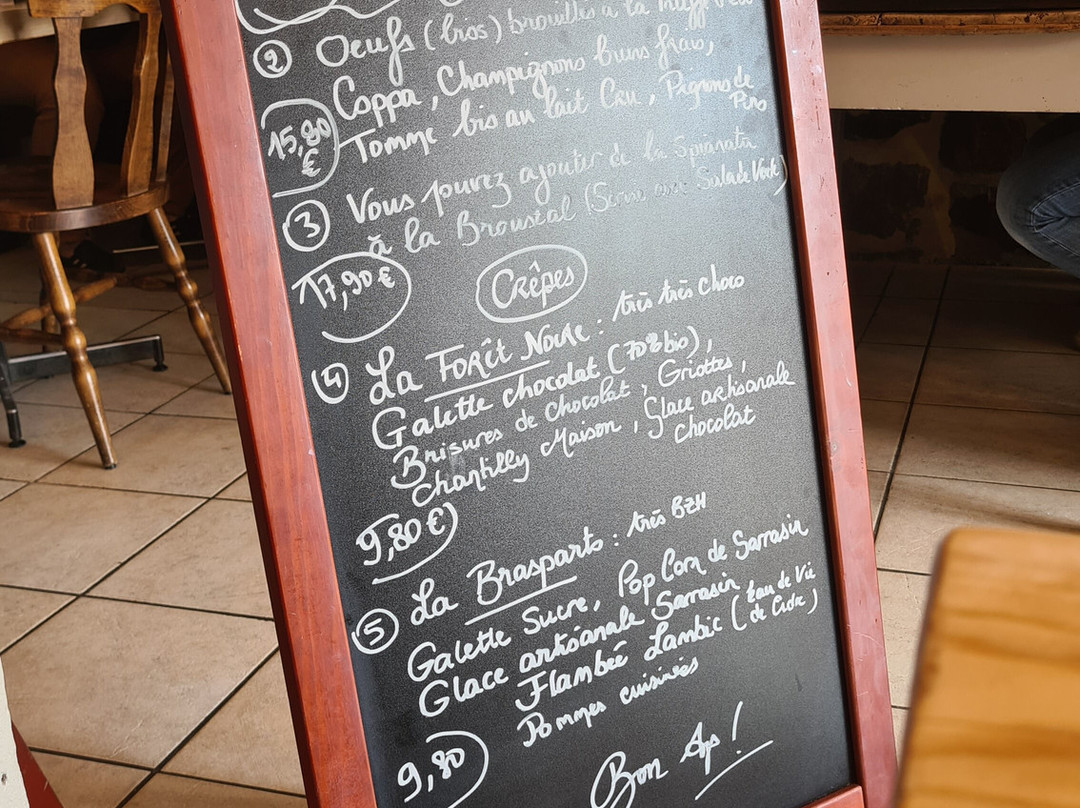 ② Oeufs (bios) brouillés à la
Coppa, Champignons bruns frais,
15,80 €
Tomme bio au lait Cru, Pignons de
Pins
③ Vous pouvez ajouter de la Spianata
à la Broustal (Servie avec Salade Verte)
17,90 €
Crêpes
④ La Forêt Noire : très très choco
Galette chocolat (70% bio),
Brisures de chocolat, Griottes,
Chantilly Maison, Glace artisanale
chocolat
9,80 €
⑤ La Brasparts : très BZH
Galette Sucre, Pop Corn de Sarrasin
Glace artisanale Sarrasin
Flambée Lambic (Eau de Vie
de Cidre)
Pommes cuisinées
9,80
Bon App !